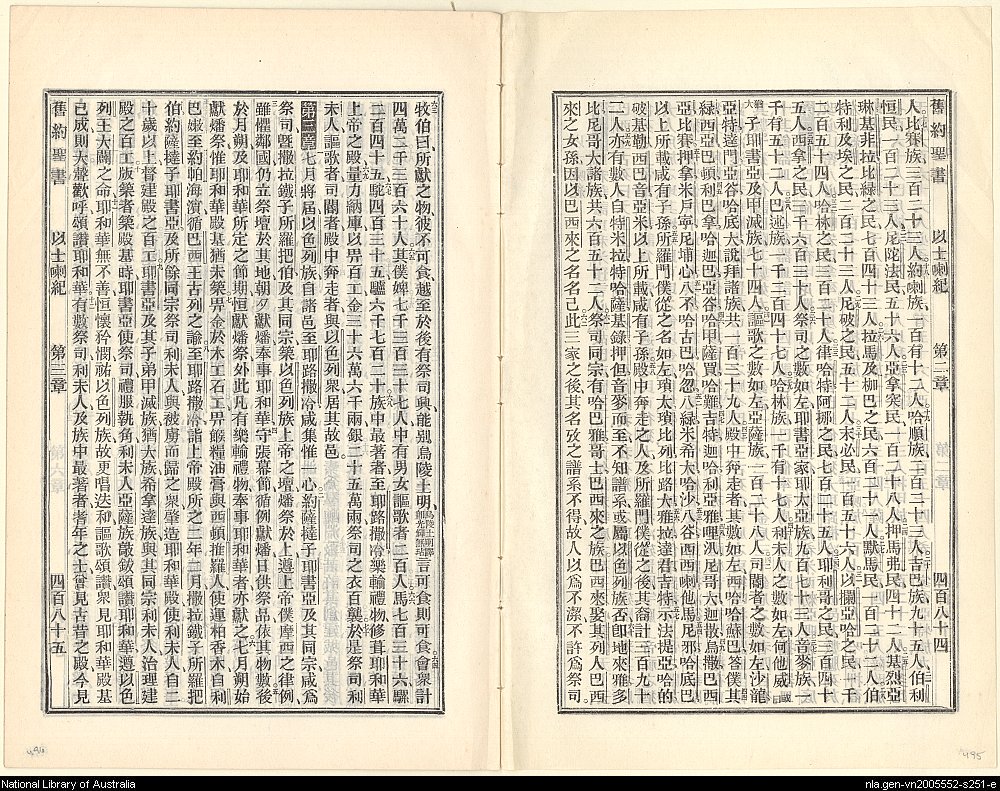 舊約聖書 以士喇紀 第二章 四百八十四
人比賽族三百二十三人約喇族一百有十二人哈順族二百二十三人吉巴族九十五人伯利
恒民一百二十三人尼陀法民五十六人亞拿突民一百二十八人押馬弗民四十二人基烈亞
琳基非拉比綠之民七百四十三人拉馬及枷巴之民六百二十一人默馬民一百二十二人伯
特利及埃之民二百二十三人尼破之民五十二人末必民一百五十六人以攔亞哈之民一千
二百五十四人哈林之民三百二十人律哈特阿挪之民七百二十五人耶利哥之民三百四十
五人西拿之民三千六百三十人祭司之數如左耶書亞家耶太亞族九百七十三人音麥族一
千有五十二人巴述族一千二百四十七人哈林族一千有十七人利未人之數如左何他威
子耶書亞及甲滅族七十四人謳歌之數如左亞薩族一百二十八人司閽者之數如左沙龍
亞特達門亞谷哈底大說拜諸族共一百三十九人殿中奔走者其數如左西哈哈蘇巴答僕其
綠西亞巴頓利巴拿哈迦巴亞谷哈甲薩買哈難吉特迦哈利亞雅哩汎尼哥大迦散烏撒巴西
亞比賽押拿米戶寧尼埔心八不哈古巴哈忽八綠米希大哈沙八谷西西喇他馬尼邪哈底巴
以上所載咸有子孫所羅門僕從之名如左瑣太瑣賓比列比路大雅拉達君吉特示法提亞哈的
破基勒西八音亞米以上所載咸有子孫殿中奔走之人及所羅門僕從之後其裔計三百九十
二人亦有數人自特米拉特哈薩基錄押但音麥而至不知譜系或屬以色列族否卽地來雅多
比尼哥大諸族共六百五十二人祭司同宗有哈巴雅哥士巴西來之族巴西來娶其列人巴西
來之女孫因以巴西來之名名己此三家之後其名攷之譜系不得故人以爲不潔不許爲祭司
牧伯曰所獻之物彼不可食越至於後有祭司與能別烏陵土明言可食則可食會衆計
四萬二千三百六十人其僕婢七千三百三十七人中有男女謳歌者二百人馬七百三十六騾
二百四十五駝四百三十五驢六千七百二十族中最著者至耶路撒冷樂輸禮物修葺耶和華
上帝之殿量力納庫以畀百工金三十六萬六千兩銀二十五萬兩祭司之衣百襲於是祭司利
未人謳歌者司閽者殿中奔走者與以色列衆居其故邑
第三章七月將屆以色列族自諸邑至耶路撒冷咸集惟一心約薩撻子耶書亞及其同宗咸爲
祭司暨撒拉鐵子所羅把伯及其同宗築以色列族上帝之壇燔祭於上遵上帝僕摩西之律例
雖懼鄰國仍立祭壇於其地朝夕獻燔奉事耶和華守張幕節循例獻燔日供祭品依其物數後
於月朔及耶和華所定之節期恒獻燔祭外此凡有樂輸禮物奉事耶和華者亦獻之七月朔始
獻燔祭惟耶和華殿基猶未築畀金於木工石工畀餱糧油膏與西頓推羅人使運柏香木自利
巴嫩至約帕海濱循巴西王古列之諭至耶路撒冷詣上帝殿所之二年二月撒拉鐵子所羅把
伯約薩撻子耶書亞及所餘同宗祭司利未人與被虜而歸之衆肇造耶和華殿使利未人自二
十歲以上督建殿之百工耶書亞及其子弟甲滅族猶大族希拿達族與其同宗利未人治理建
殿之百工版築者築殿基時耶書亞使祭司禮服執角利未人亞薩族鼓鈸頌讚耶和華遵以色
列王大闢之命耶和華無不善恒懷矜憫祐以色列族故更唱迭和謳歌頌讚衆見耶和華殿基
已成則大聲歡呼頌讚耶和華有數祭司利未人及族中最著者耆年之士曾見古昔之殿今見
舊約聖書 以士喇紀 第三章 四百八十五
494
495
National Library of Australia
nla.gen-vn2005552-s251-e